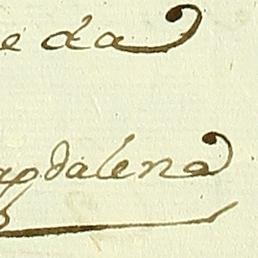 e da
agdalena